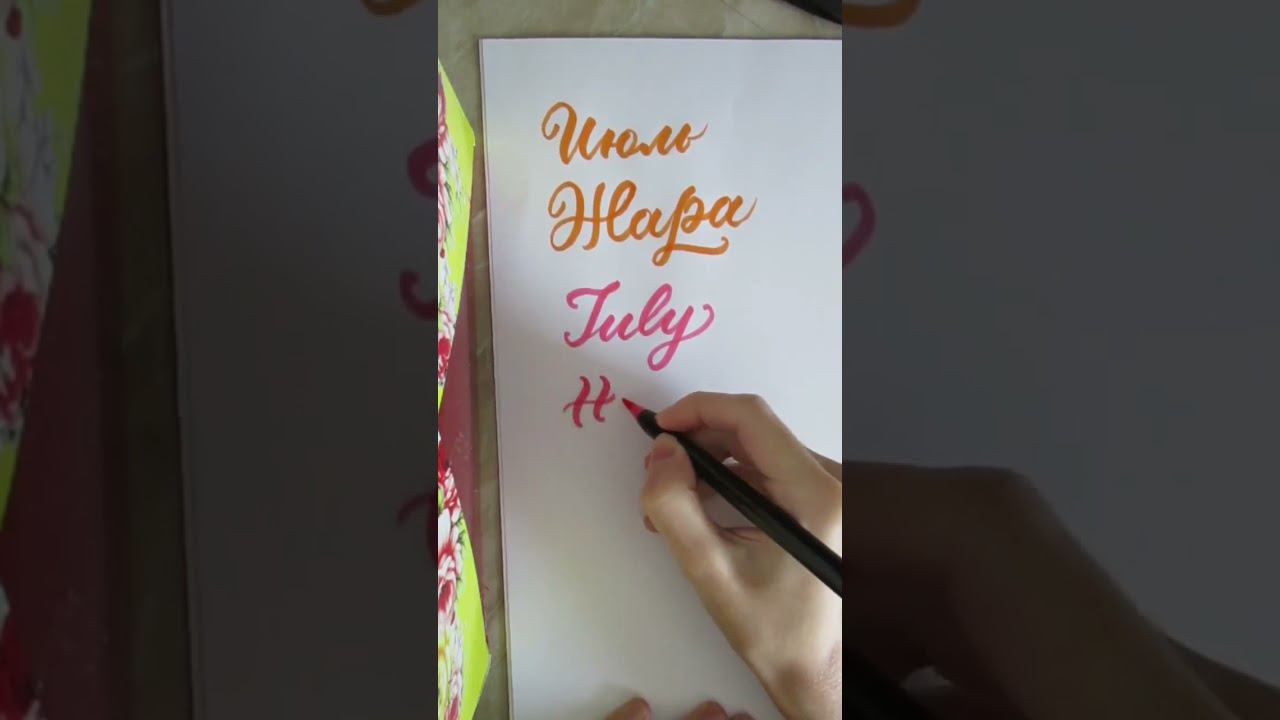 Июль
Жара
July
H